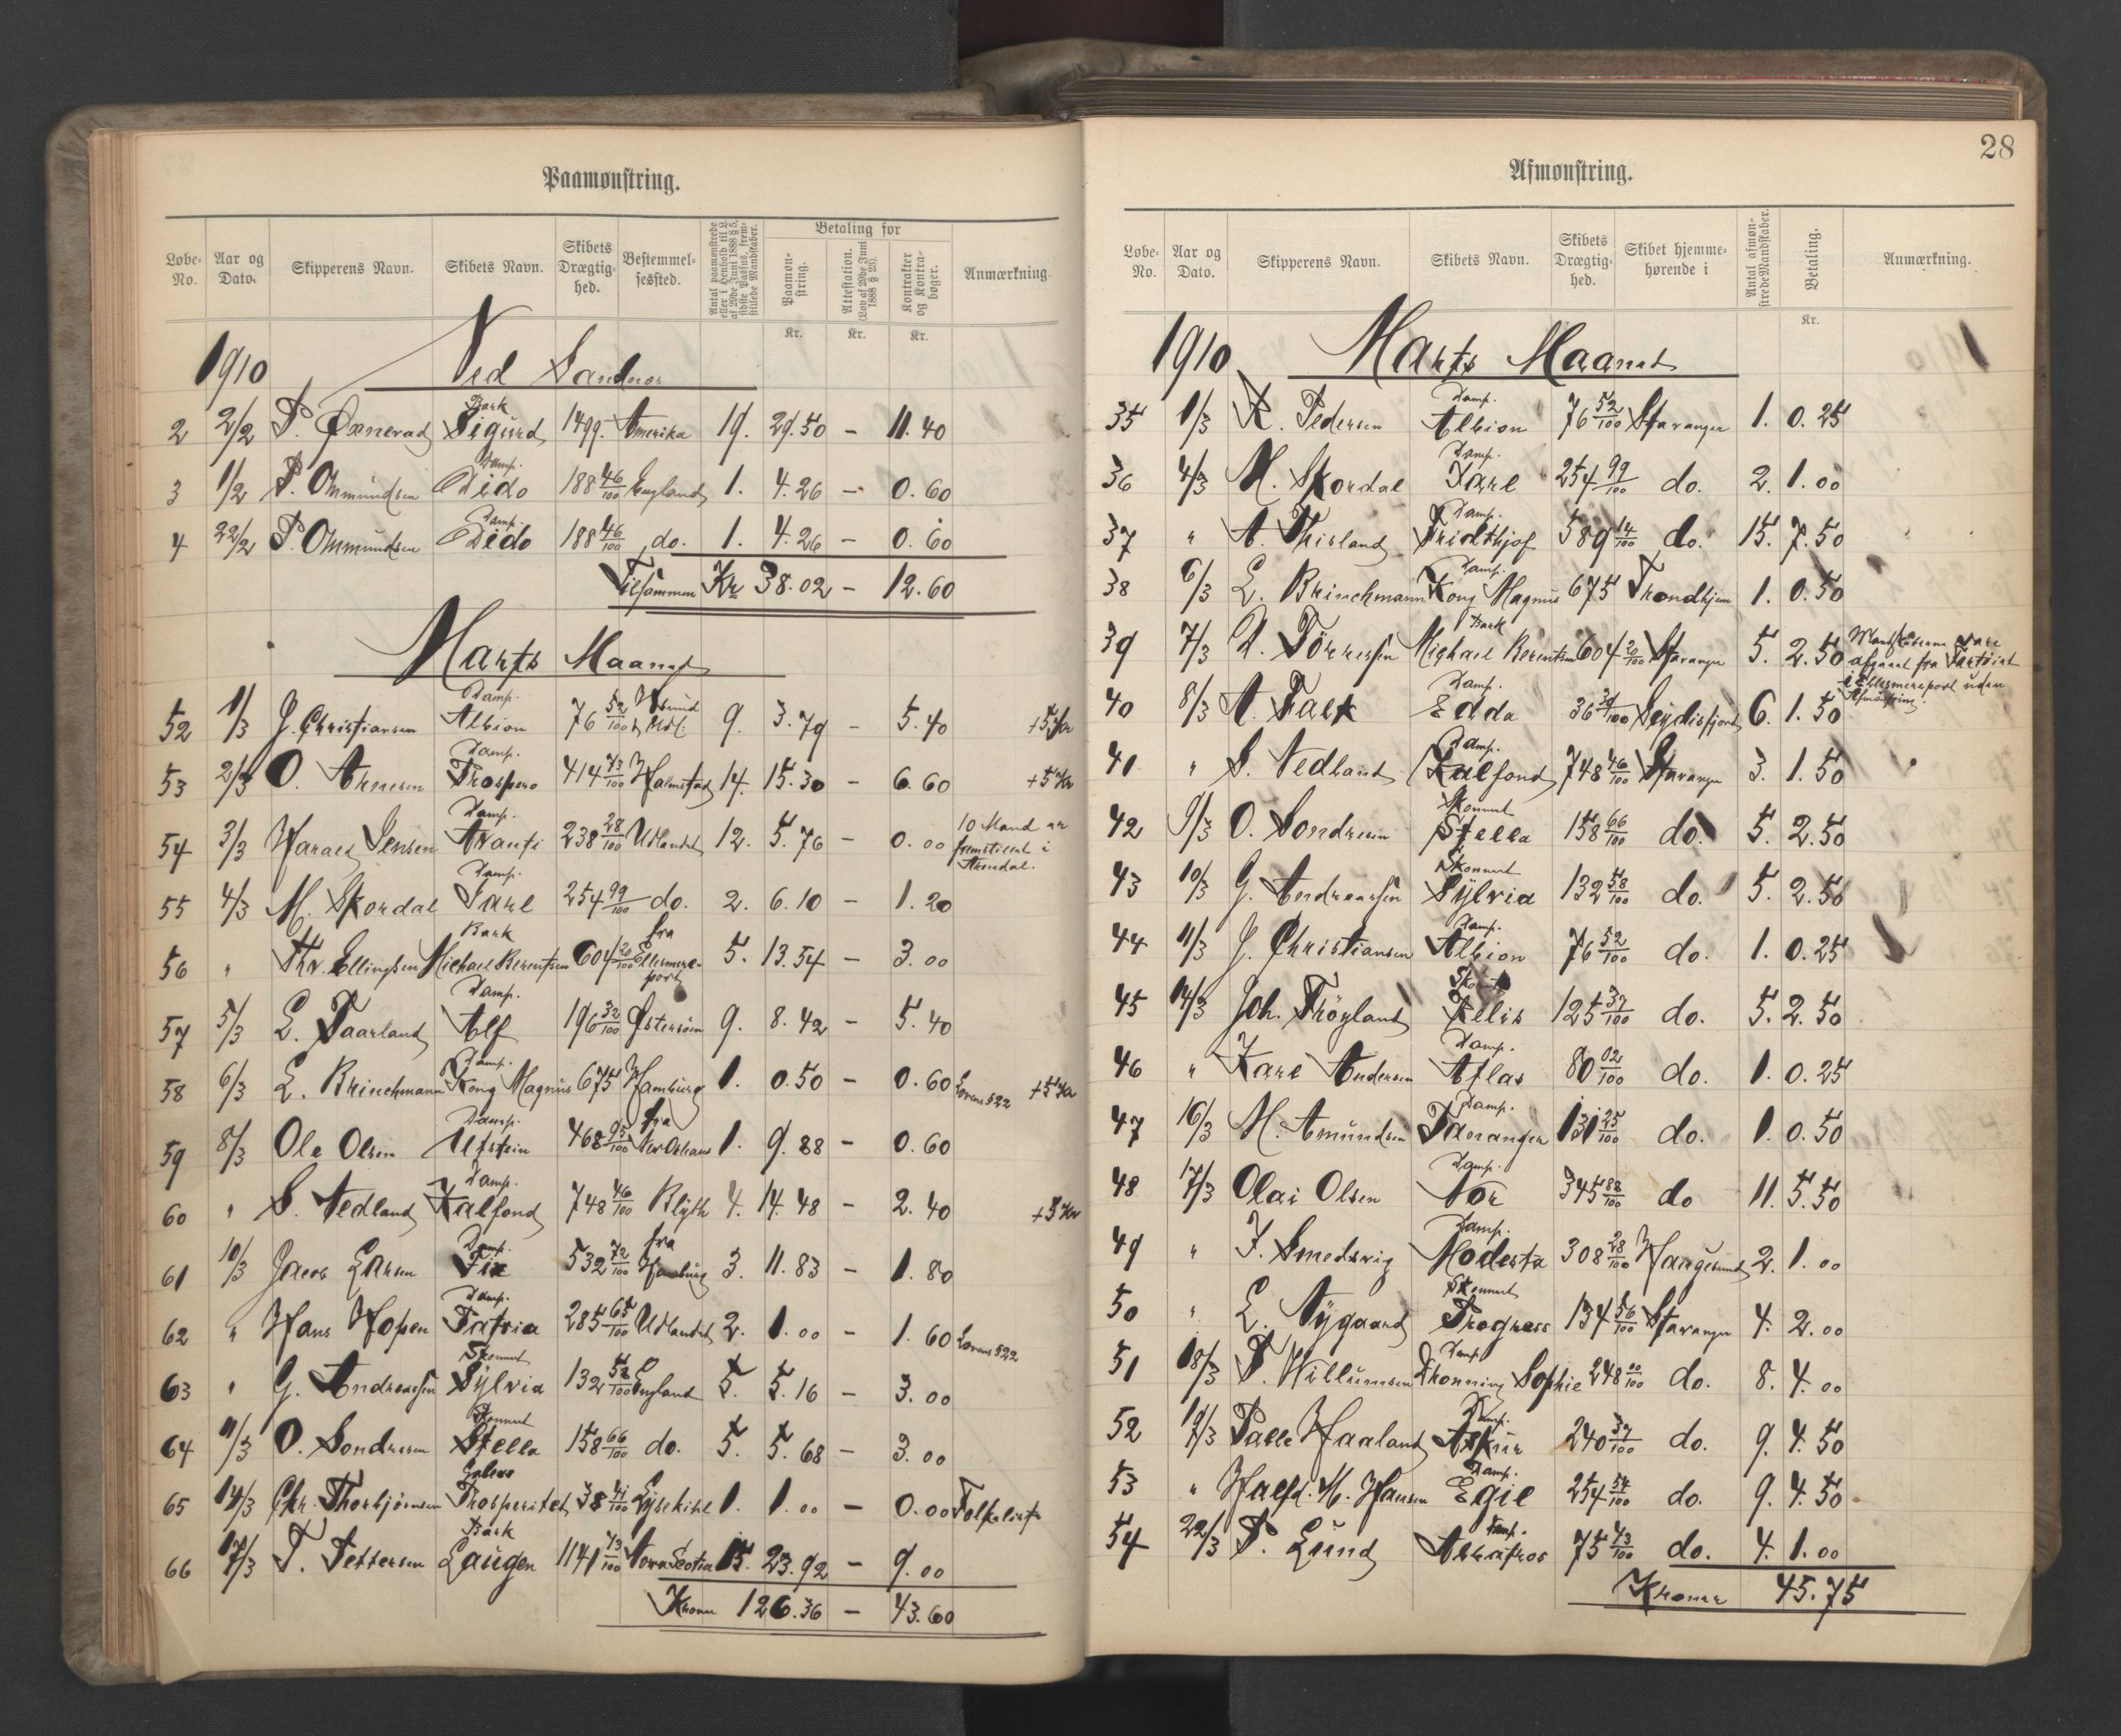 Paamønstring.
Løbe-No. Aar og Dato. Skipperens Navn. Skibets Navn. Skibets Drægtig-hed. Bestemmel-sessted. Antal paamønstrede eller i Henhold til L. af 29de Juni 1888 § 5, sidste Passus, frem-stillede Mandskaber. Betaling for Paamøn-string. Attestation. (Lov af 29de Juni 1888 § 23). Kontrakter og Kontra-bøger. Anmærkning.
Kr. Kr. Kr.
1910 Ved Sandnes
2 2/2 P. Øxnevad Bark Sigurd 1499. Amerika 19. 29.50 – 11.40
3 11/2 P. Ommundsen Damp. Dido 188 46/100 England 1. 4.26 – 0.60
4 22/2 P. Ommundsen Damp. Dido 188 46/100 do. 1. 4.26 – 0.60
Tilsammen Kr 38.02 – 12.60
Marts Maaned
52 1/3 J. Christiansen Damp. Albion 76 52/100 9. 3.79 – 5.40 +5 Kr
53 2/3 O. Arnesen Damp. Prospero 414 73/100 Halmstad 14. 15.30 – 6.60 +5 Kr
54 3/3 Harald Jensen Damp. Avanti 238 28/100 Udlandet 12. 5.76 – 0.00 10 Mand er fremstillet i Arendal.
55 4/3 M. Skordal Damp. Jarl 254 99/100 do. 2. 6.10 – 1.20
56 " Thv. Ellingsen Bark Michael Berentsen 604 20/100 fra Ellesmere-port 5. 13.54 – 3.00
57 5/3 L. Taarland Damp. Alf 196 32/100 Østersøen 9. 8.42 – 5.40
58 6/3 L. Brinchmann Damp. Kong Magnus 675 Hamburg 1. 0.50 – 0.60 Lovens § 22 +5 Kr
59 8/3 Ole Olsen Damp. Utstein 468 95/100 fra New Orleans 1. 9.88 – 0.60
60 " S. Nedland Damp. Kalfond 748 46/100 Blyth 4. 14.48 – 2.40 +5 Kr
61 10/3 Jacob Larsen Damp. Fix 532 72/100 fra Hamburg 3. 11.83 – 1.80
62 " Hans Hopen Damp. Patria 285 65/100 Udlandet 2. 1.00 – 1.60 Lovens § 22
63 " G. Andreassen Skonnert Sylvia 132 58/100 England 5. 5.16 – 3.00
64 11/3 O. Sondresen Skonnert Stella 158 66/100 do. 5. 5.68 – 3.00
65 14/3 Chr. Thorbjørnsen Galeas Prosperitet 38 41/100 Lysekihl 1. 1.00 – 0.00 Folkeliste
66 17/3 T. Pettersen Bark Laugen 1141 73/100 Nova Scotia 15. 23.92 – 9.00
Kroner 126.36 – 43.60
28
Afmønstring.
Løbe-No. Aar og Dato. Skipperens Navn. Skibets Navn. Skibets Drægtig-hed. Skibet hjemme-hørende i Antal afmøn-strede Mandskaber. Betaling. Anmærkning.
Kr.
1910 Marts Maaned
35 1/3 R. Pedersen Damp. Albion 76 52/100 Stavanger 1. 0.25
36 4/3 M. Skordal Damp. Jarl 254 99/100 do. 2. 1.00
37 " A. Thisland Damp. Fridthjof 589 14/100 do. 15. 7.50
38 6/3 L. Brinchmann Damp. Kong Magnus 675 Trondhjem 1. 0.50
39 7/3 A. Törresen Bark Michael Berentsen 604 20/100 Stavanger 5. 2.50 Mandskaberne vare afgaaet fra Fartøiet i Ellesmereport uden Afmønstring.
40 8/3 A. Falk Damp. Edda 36 Seydisfjord 6. 1.50
41 " S. Nedland Damp. Kalfond 748 46/100 Stavanger 3. 1.50
42 9/3 O. Sondresen Skonnert Stella 158 66/100 do. 5. 2.50
43 10/3 G. Andreassen Skonnert Sylvia 132 58/100 do. 5. 2.50
44 11/3 J. Christiansen Damp. Albion 76 52/100 do. 1. 0.25
45 14/3 Joh. Tröyland 125 37/100 do. 5. 2.50
46 " Karl Andersen Damp. Atlas 80 02/100 do. 1. 0.25
47 16/3 M. Amundsen Damp. Taranger 131 25/100 do. 1. 0.50
48 17/3 Olai Olsen Damp. Nor 345 88/100 do 11. 5.50
49 " J. Smedsvig Damp. Modesta 308 28/100 Haugesund 2. 1.00
50 " L. Nygaard Skonnert Progress 134 56/100 Stavanger 4. 2.00
51 18/3 P. Willumsen Damp Dronning Sophie 248 00/100 do. 8. 4.00
52 19/3 Palle Haaland Damp. Askur 240 37/100 do. 9. 4.50
53 " Halfd. M. Hansen Damp. Egil 254 54/100 do. 9. 4.50
54 22/3 P. Lund Damp. Albatros 75 43/100 do. 4. 1.00
Kroner 45.75